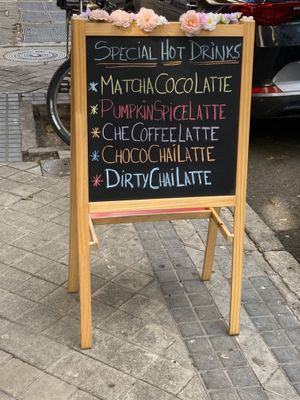 SPECIAL HOT DRINKS
* MATCHA COCO LATTE
* PUMPKIN SPICE LATTE
* CHE COFFEE LATTE
* CHOCO CHAI LATTE
* DIRTY CHAI LATTE